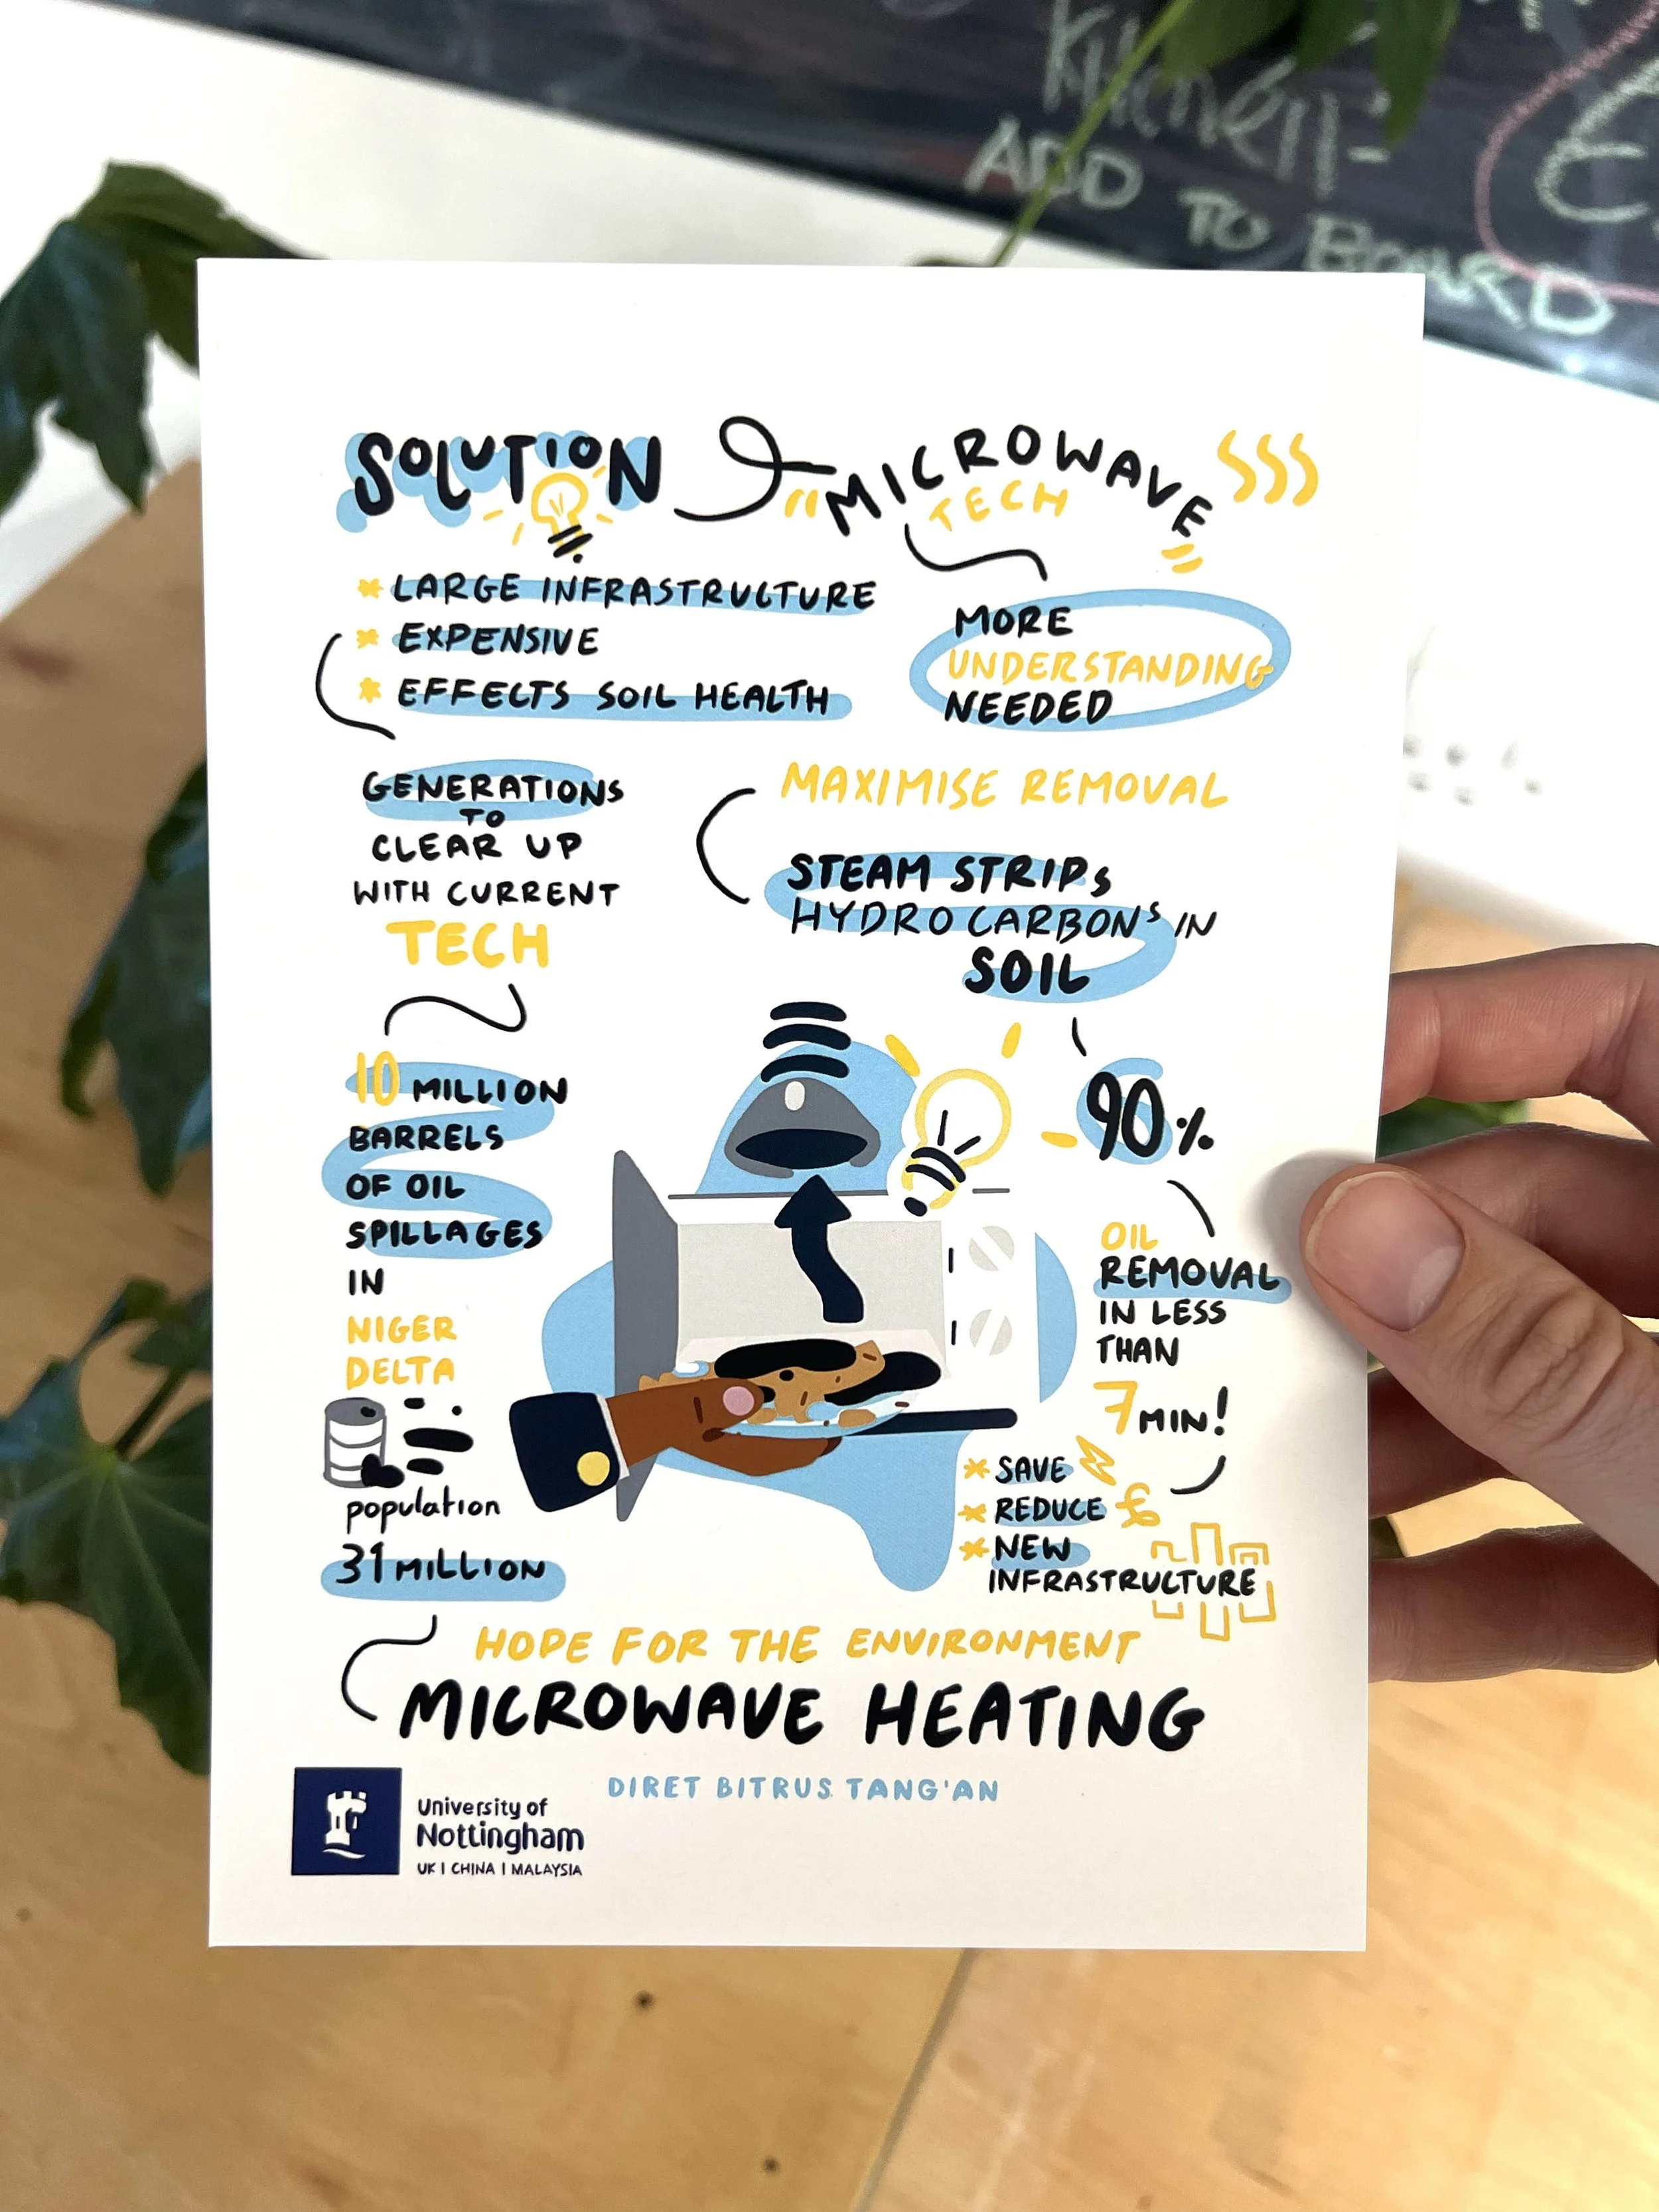 Kitchen-
ADD TO BOARD
SOLUTION
MICROWAVE
TECH
* LARGE INFRASTRUCTURE
* EXPENSIVE
* EFFECTS SOIL HEALTH
MORE
UNDERSTANDING
NEEDED
GENERATIONS
TO
CLEAR UP
WITH CURRENT
TECH
MAXIMISE REMOVAL
STEAM STRIPS
HYDROCARBONS IN
SOIL
10 MILLION
BARRELS
OF OIL
SPILLAGES
IN
NIGER
DELTA
population
31 MILLION
90%
OIL
REMOVAL
IN LESS
THAN
7 MIN!
* SAVE
* REDUCE £
* NEW
INFRASTRUCTURE
HOPE FOR THE ENVIRONMENT
MICROWAVE HEATING
DIRET BITRUS TANG'AN
University of
Nottingham
UK | CHINA | MALAYSIA